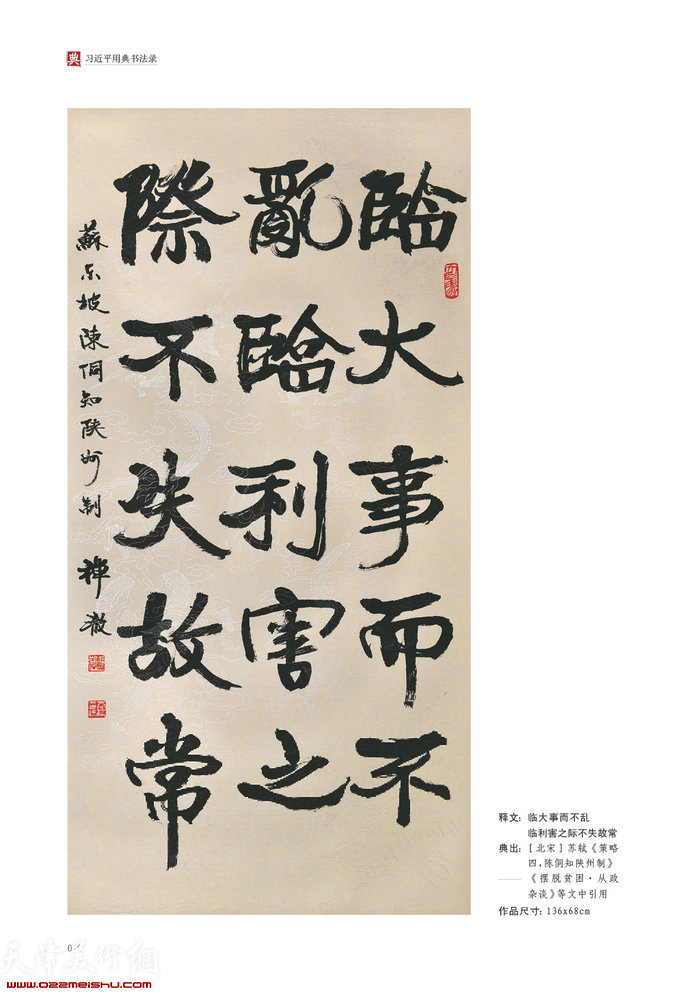 典 习近平用典书法录
臨大事而不
亂臨利害之
際不失故常
蘇东坡陳侗知陝州制 禅澈
释文：临大事而不乱
临利害之际不失故常
典出：［北宋］苏轼《策略
四，陈侗知陕州制》
——《摆脱贫困·从政
杂谈》等文中引用
作品尺寸：136x68cm
天津美术网
www.022meishu.com